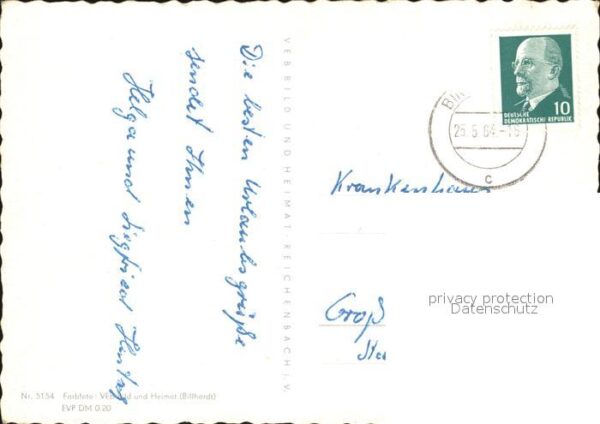 Die besten Urlaubsgrüße
sendet Ihnen
Helga und Siegfried
VEB BILD UND HEIMAT · REICHENBACH i. V.
10
DEUTSCHE
DEMOKRATISCHE REPUBLIK
26.5.64.-18
c
Krankenhaus
Groß
privacy protection
Datenschutz
Nr. 5154 Farbfoto: VEB Bild und Heimat (Billhardt)
EVP DM 0.20